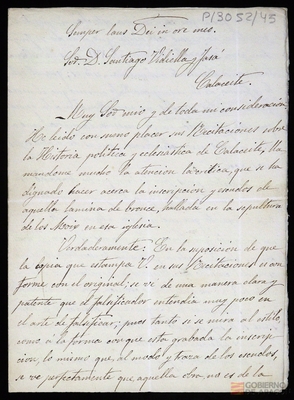 P/3052/45
Semper laus Dei in ore meo.
Sor. D. Santiago Vidiella y Jasá
Calaceite.
Muy Sor mio y de toda mi consideracion
He leido con sumo placer sus Recitaciones sobre
la Historia politica y eclesiástica de Calaceite, lla
mandome mucho la atencion la critica que se ha
dignado hacer acerca la inscripcion y escudos de
aquella lamina de bronce, hallada en la sepultura
de los Moix en esa iglesia.
Verdaderamente: En la suposicion de que
la copia que estampa V. en sus Recitaciones es con
forme con el original, se ve de una manera clara y
patente que el falsificador entendia muy poco en
el arte de falsificar; pues tanto si se mira al estilo
como á la forma con que esta grabada la inscrip
cion, lo mismo que, al modo y traza de los escudos,
se ve perfectamente que aquella obra no es de la
GOBIERNO
DE ARAGON